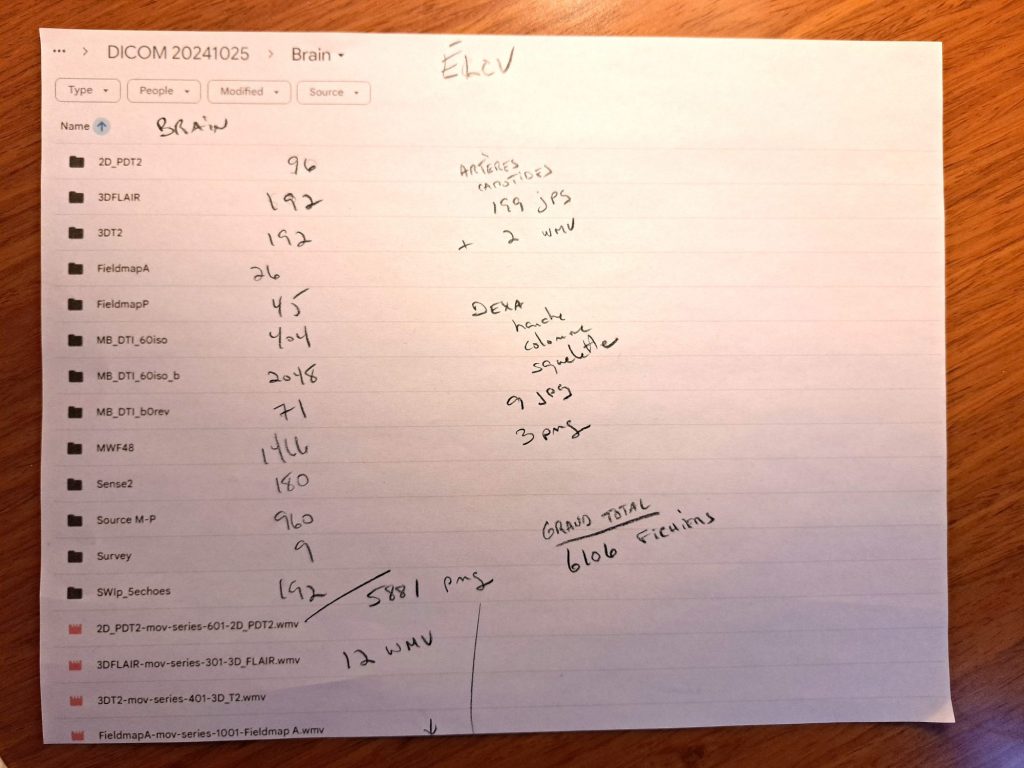 ... > DICOM 20241025 > Brain
ÉLCV
Type People Modified Source
Name BRAIN
2D_PDT2 96
3DFLAIR 192
3DT2 192
FieldmapA 26
FieldmapP 45
MB_DTI_60iso 404
MB_DTI_60iso_b 2048
MB_DTI_b0rev 71
MWF48 1466
Sense2 180
Source M-P 960
Survey 9
SWIp_5echoes 192
5881 png
2D_PDT2-mov-series-601-2D_PDT2.wmv
3DFLAIR-mov-series-301-3D_FLAIR.wmv
12 WMV
3DT2-mov-series-401-3D_T2.wmv
FieldmapA-mov-series-1001-Fieldmap A.wmv
ARTÈRES
CAROTIDES
199 jpg
+ 2 WMV
DEXA
hanche
colonne
squelette
9 jpg
3 png
GRAND TOTAL
6106 FICHIERS